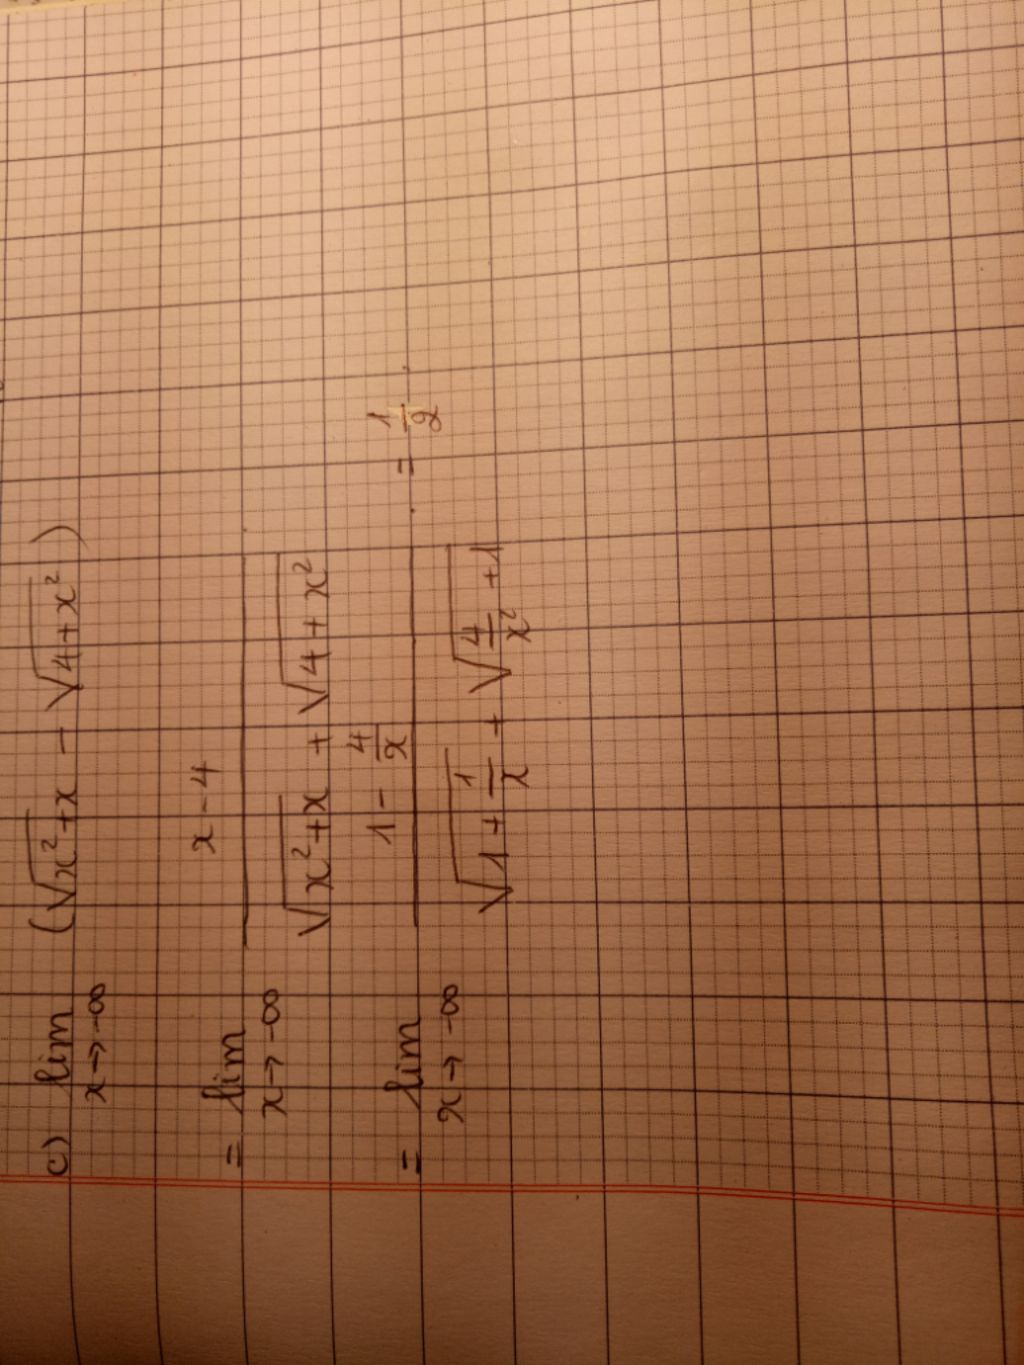 c) lim (√(x²+x) - √(4+x²))
x → -∞
= lim (x - 4) / (√(x²+x) + √(4+x²))
x → -∞
= lim (1 - 4/x) / (√(1 + 1/x) + √(4/x² + 1)) = 1/2
x → -∞